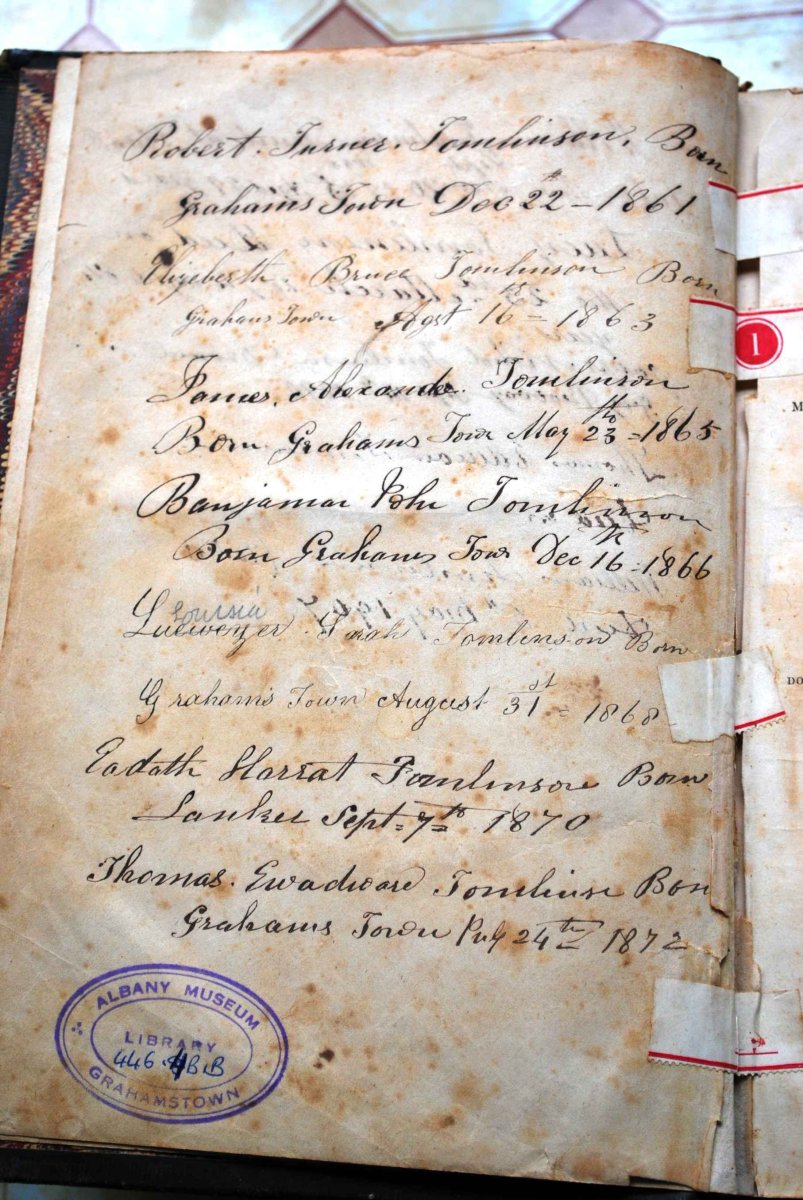 Robert. Turner. Tomlinson. Born
Grahams Town Dec 22 - 1861
Elizeberth. Bruce Tomlinson Born
Grahams Town Agst 16th = 1863
James. Alexander. Tomlinson
Born. Grahams Town May 23th = 1865
Banjaman John Tomlinson
Born Grahams Town Dec 16th = 1866
Louisia
Sarah Tomlinson Born
Grahams Town August 31st = 1868
Eadath Harrat Tomlinson Born
Sept = 7th 1870
Thomas. Ewadware Tomlinson Born
Grahams Town 24th 1872
ALBANY MUSEUM
LIBRARY
446
GRAHAMSTOWN
1
M
DO